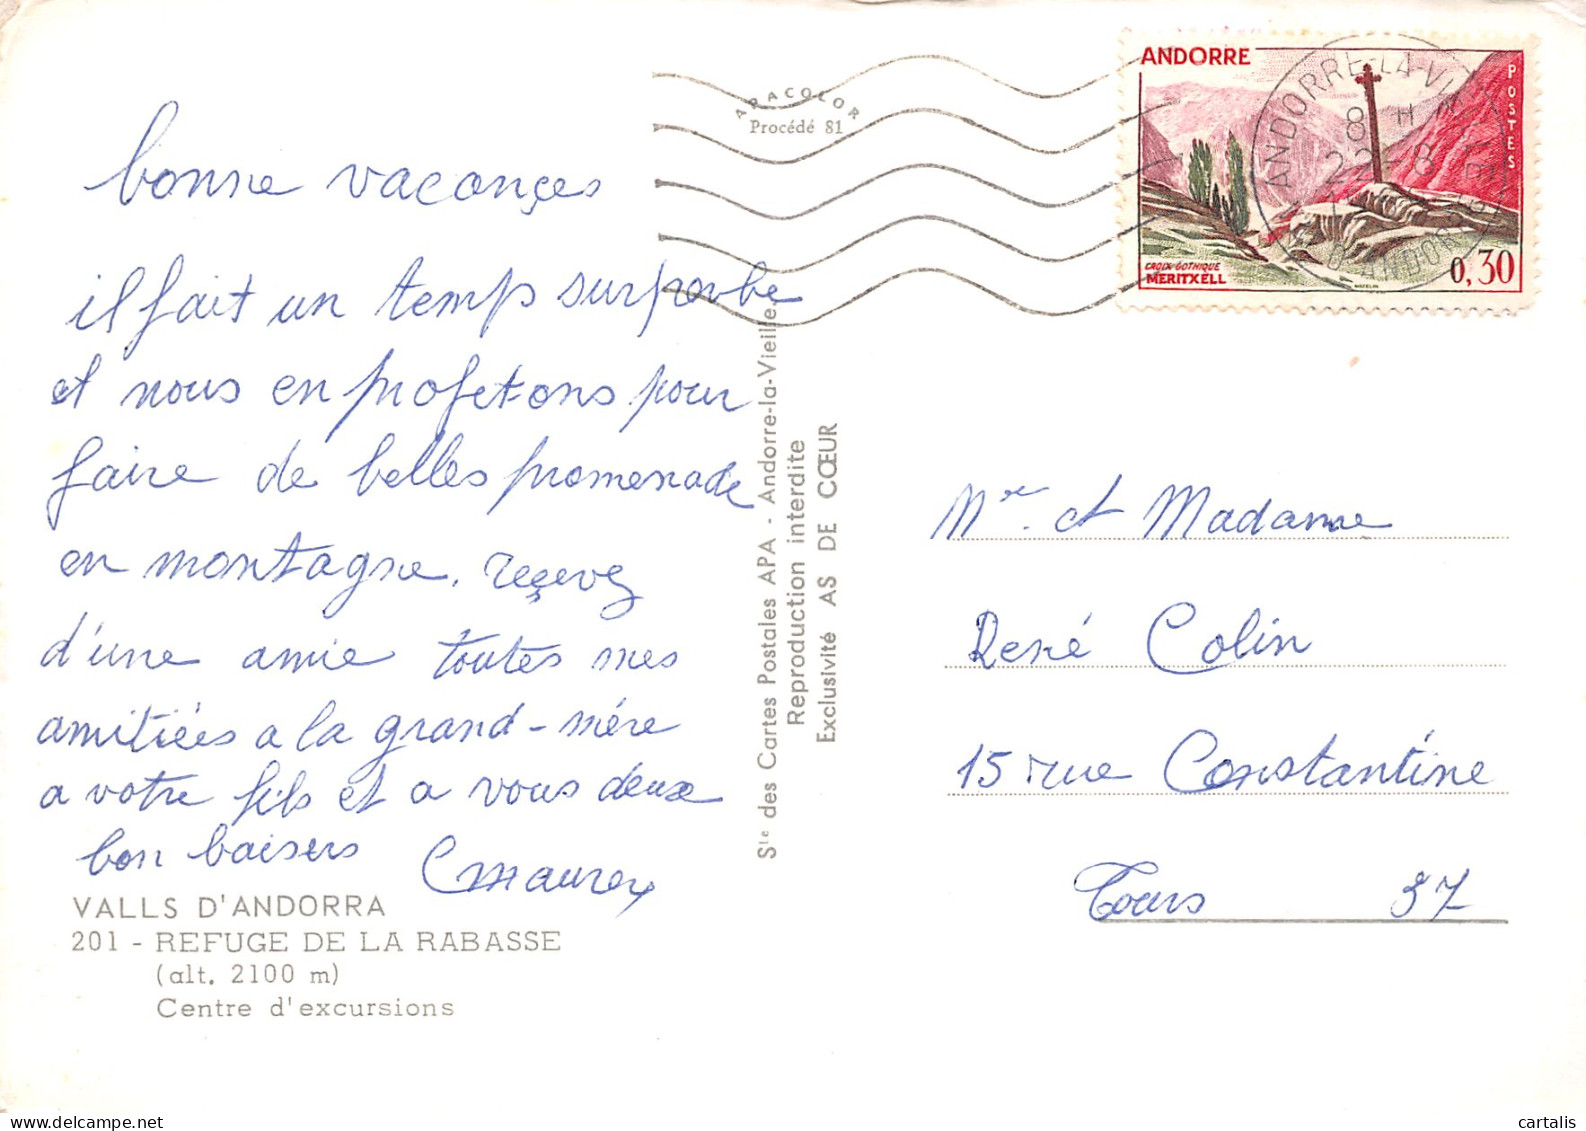 bonne vaconçes
il fait un temps surperbe
et nous en profetons pour
faire de belles promenade
en montagne. reçevez
d'une amie toutes mes
amitiées a la grand-mère
a votre fils et a vous deux
bon baisers
VALLS D'ANDORRA
201 - REFUGE DE LA RABASSE
(alt. 2100 m)
Centre d'excursions
APACOLOR
Procédé 81
Sté des Cartes Postales APA - Andorre-la-Vieille
Reproduction interdite
Exclusivité AS DE CŒUR
ANDORRE
POSTES
CROIX GOTHIQUE
MERITXELL
0,30
ANDORRE-LA-VIEILLE
8 H
22-8
D'ANDORRE
Mr. et Madame
René Colin
15 rue Constantine
Tours 37
cartalis